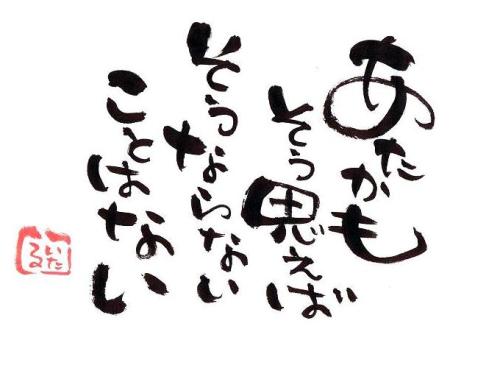 あたかも
そう思えば
そうならない
ことはない